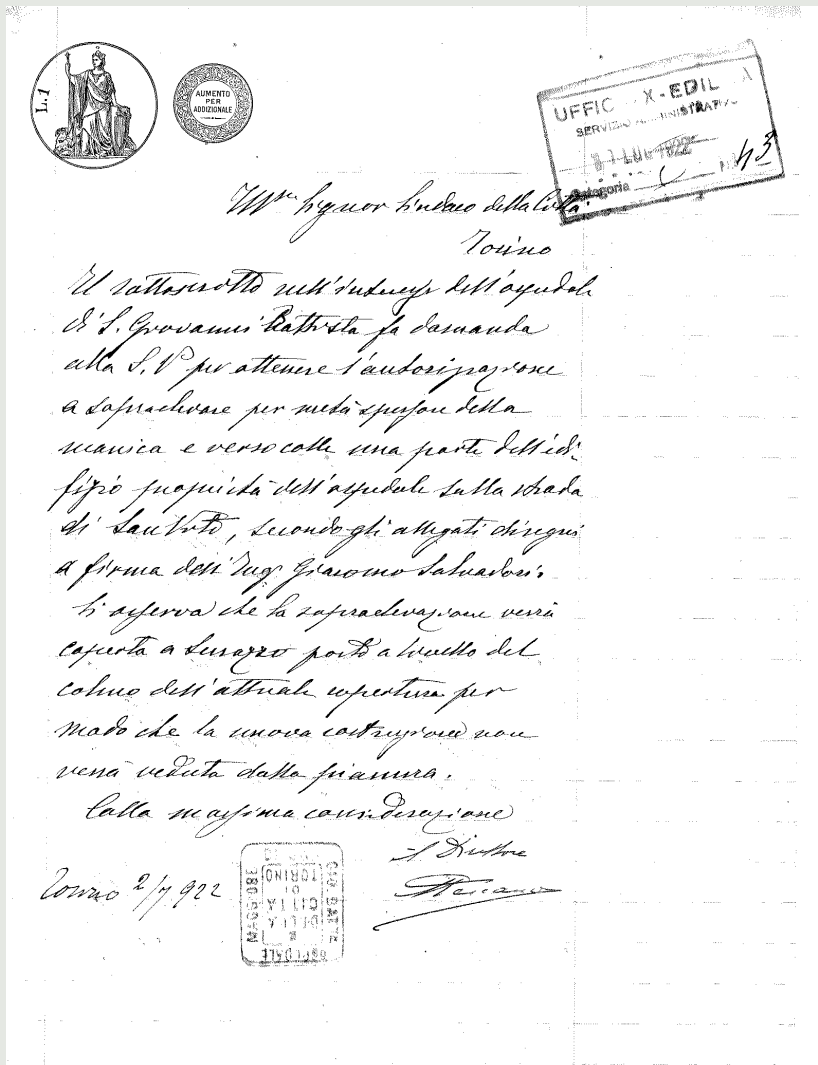 L.1
AUMENTO
PER
ADDIZIONALE
UFFIC X - EDIL A
SERVIZIO AMMINISTRATIVO
LUG 1922
Categoria 43
Ill.mo Signor Sindaco della Città
Torino
Il sottoscritto nell'interesse dell'ospedale
di S. Giovanni Battista fa domanda
alla S. V. per ottenere l'autorizzazione
a sopraelevare per metà spessore della
manica e verso colle una parte dell'edi-
fizio proprietà dell'ospedale sulla strada
di San Vito, secondo gli allegati disegni
a firma dell'Ing. Giacomo Salvadori.
Si osserva che la sopraelevazione verrà
coperta a terrazzo posto a livello del
colmo dell'attuale copertura per
modo che la nuova costruzione non
verrà veduta dalla pianura.
Colla massima considerazione
Il Direttore
Torino 2/7 922
OSPEDALE
MAGGIORE
GIO BAT
DELLA
CITTÀ
DI
TORINO